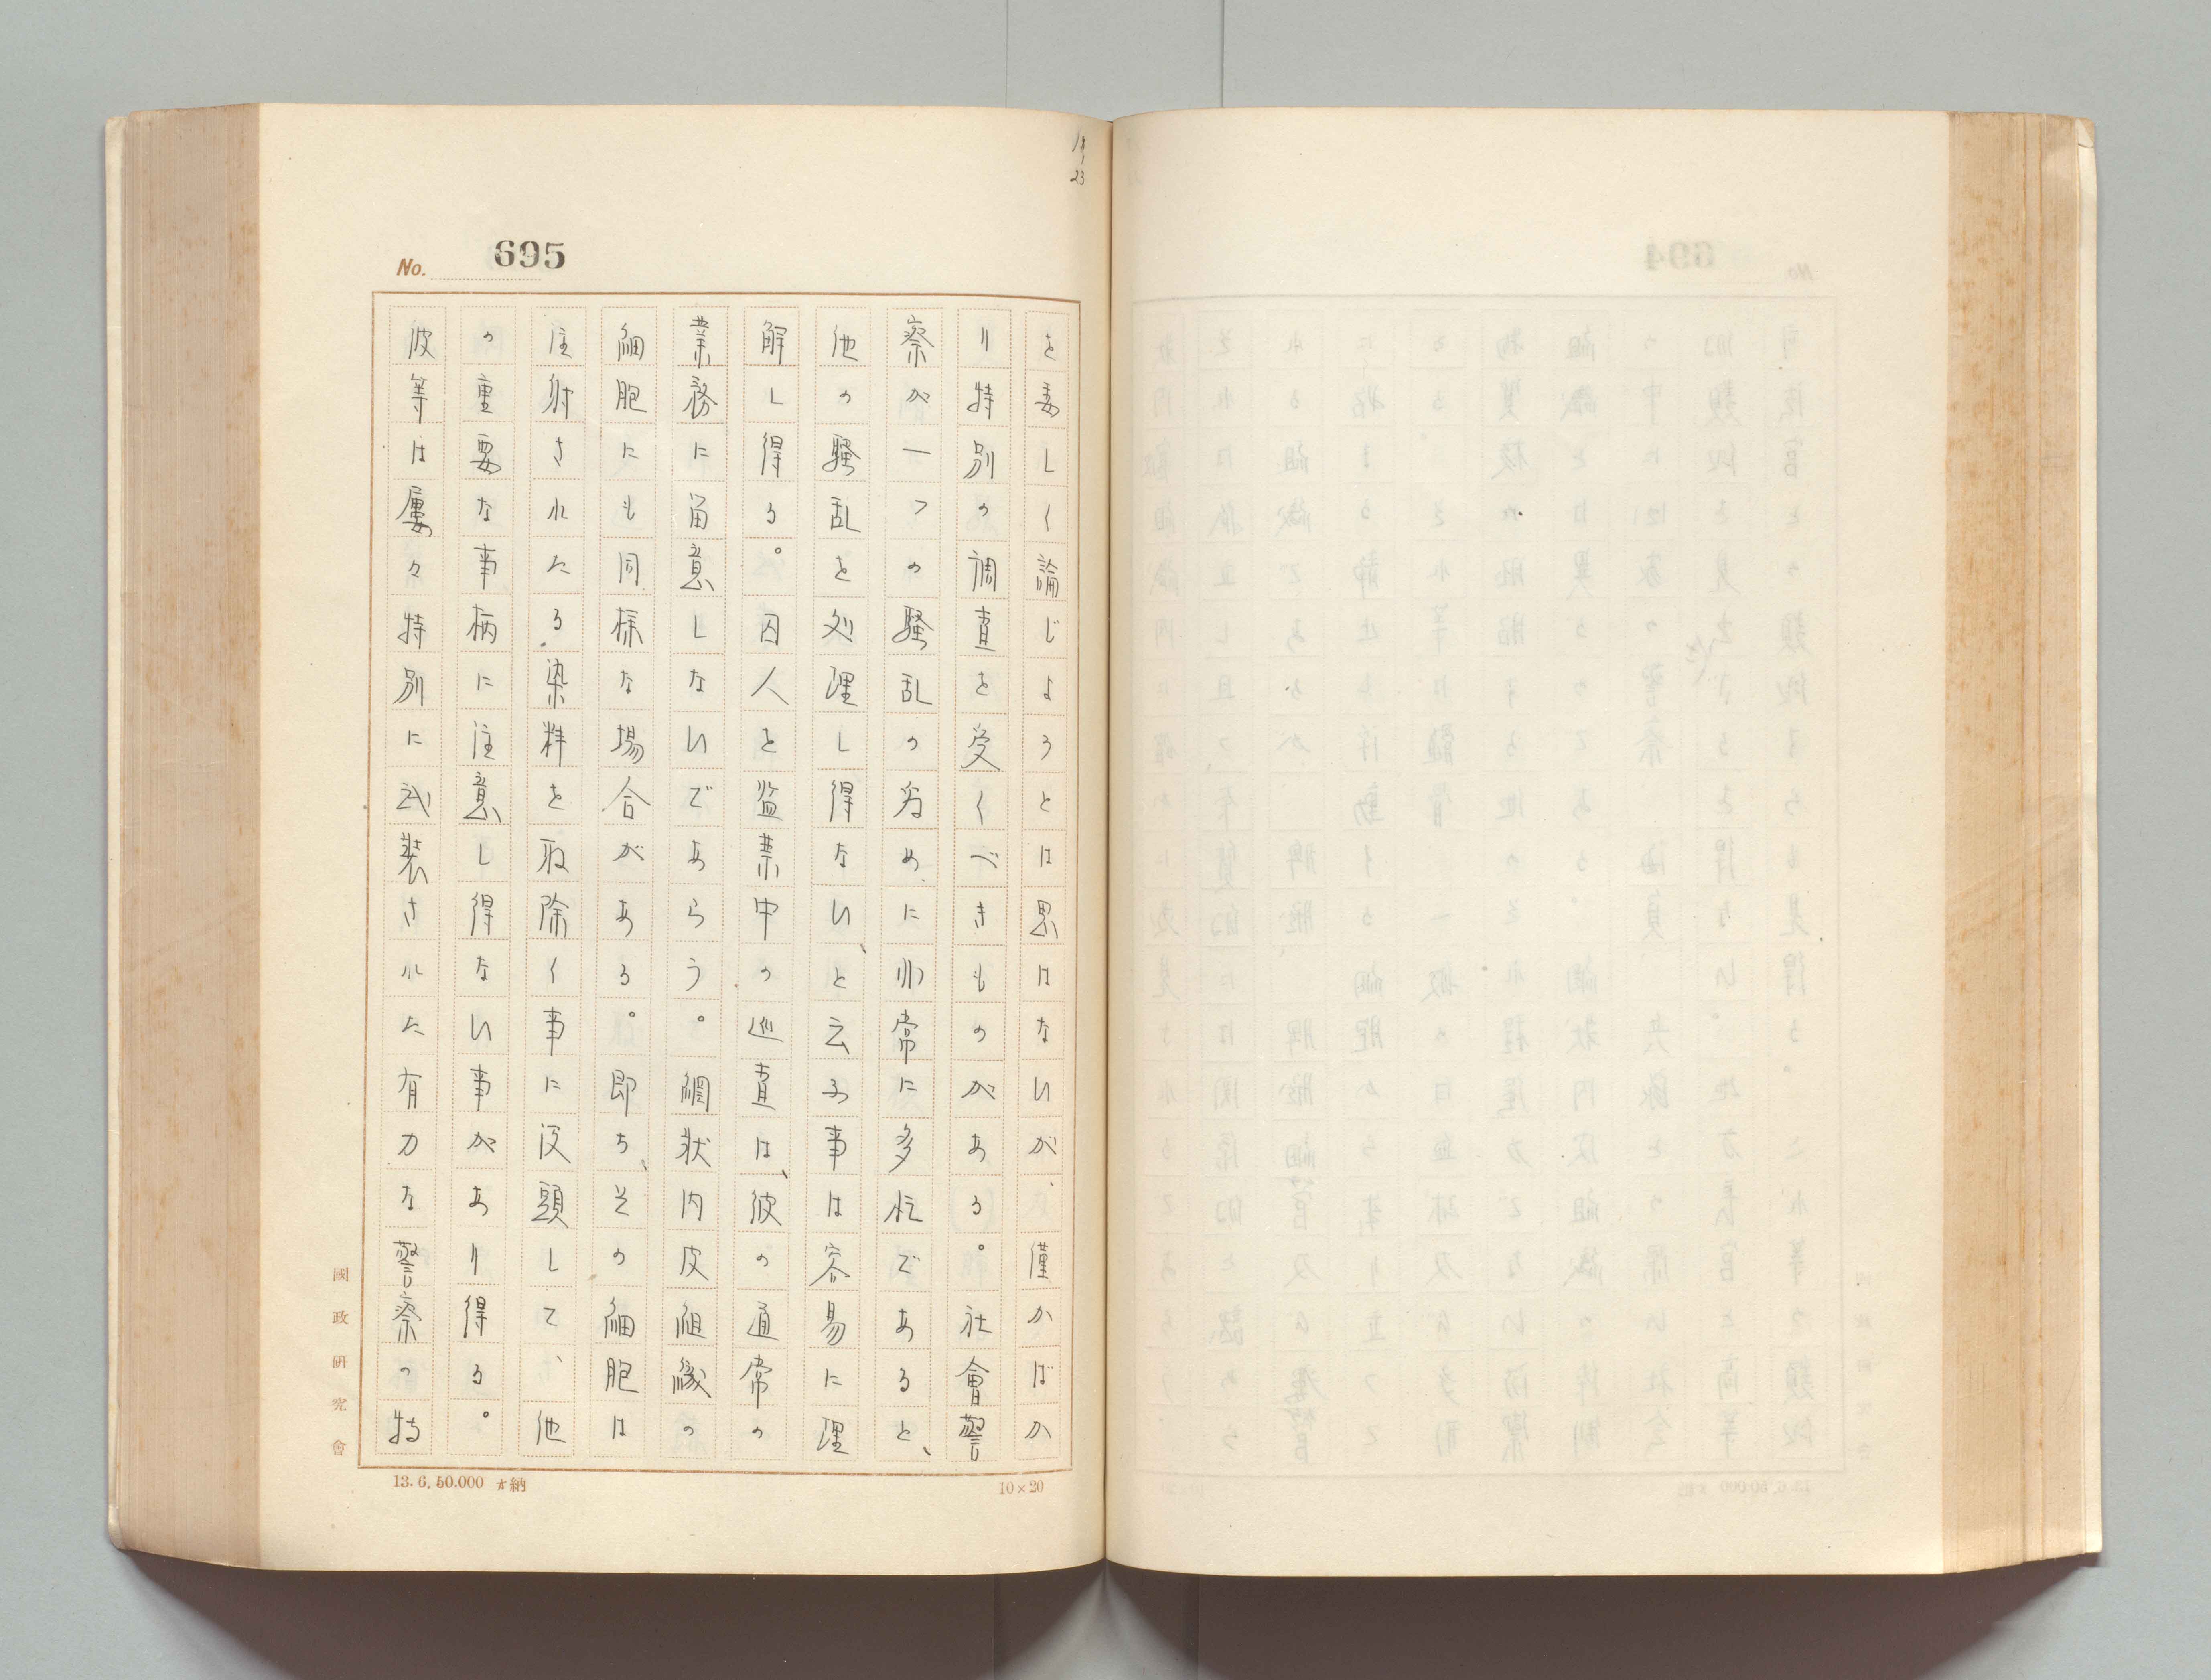 19/23
No. 695
を委しく論じようとは思はないが、僅かばか
り特別の調査を受くべきものがある。社會警
察が一つの騒乱の为めに非常に多忙であると、
他の騒乱を処理し得ない、と云ふ事は容易に理
解し得る。囚人と監禁中の巡査は、彼の通常の
業務に留意しないであらう。網状内皮組織の
細胞にも同様な場合がある。即ち、その細胞は
注射されたる染料を取除く事に没頭して、他
の重要な事柄に注意し得ない事があり得る。
彼等は屢々特別に武装された有力な警察の特
國政研究會
13.6.50.000 納
10×20